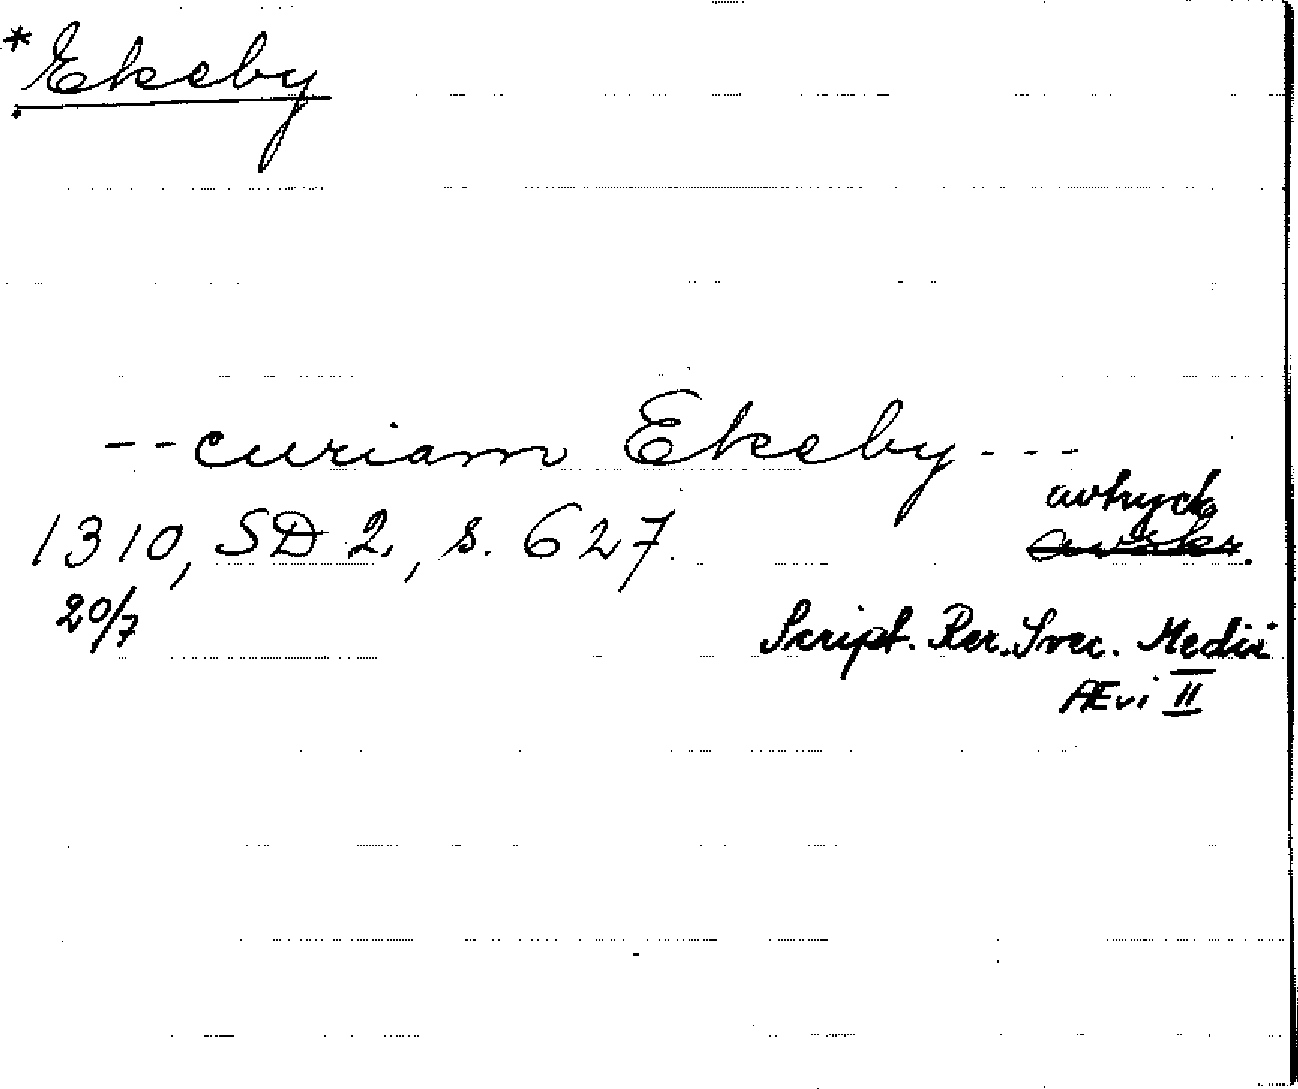 *Ekeby
--curiam Ekeby---
avtryck
1310, SD 2, s. 627. avskr.
20/7
Script. Rer. Svec. Medii
Ævi II